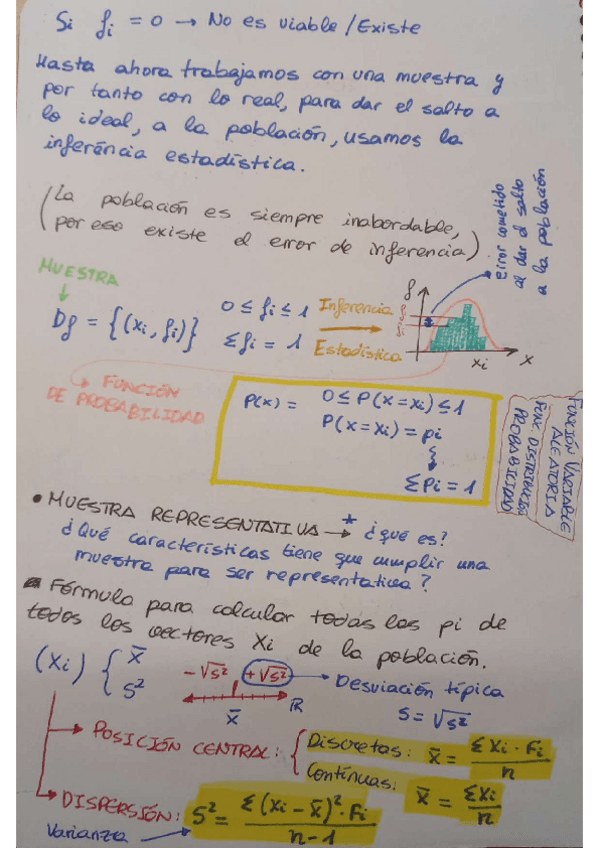 Si fi = 0 → No es viable/Existe
Hasta ahora trabajamos con una muestra y
por tanto con lo real, para dar el salto a
lo ideal, a la población, usamos la
inferéncia estadística.
(La población es siempre inabordable,
por eso existe el error de inferencia)
Error cometido
al dar el salto
a la población
MUESTRA
↓
Df = {(xi, fi)}
0 ≤ fi ≤ 1
Σfi = 1
Inferencia
Estadística
f
xi
x
FUNCIÓN
DE PROBABILIDAD
P(x) = 0 ≤ P(x=xi) ≤ 1
P(x=xi) = pi
ΣPi = 1
FUNCIÓN VARIABLE
ALEATORIA
FUNC. DISTRIBUCIÓN
PROBABILIDAD
• MUESTRA REPRESENTATIVA → * ¿qué es?
¿Qué características tiene que cumplir una
muestra para ser representativa?
Fórmula para calcular todas las pi de
todos los vectores Xi de la población.
(Xi) { x̄
S²
-√S² +√S²
x̄
R
→ Desviación típica
S = √S²
→ POSICIÓN CENTRAL: { Discretas: x̄ = Σxi · Fi / n
Contínuas: x̄ = Σxi / n
→ DISPERSIÓN: S² = Σ(xi - x̄)² · Fi / n-1
Varianza